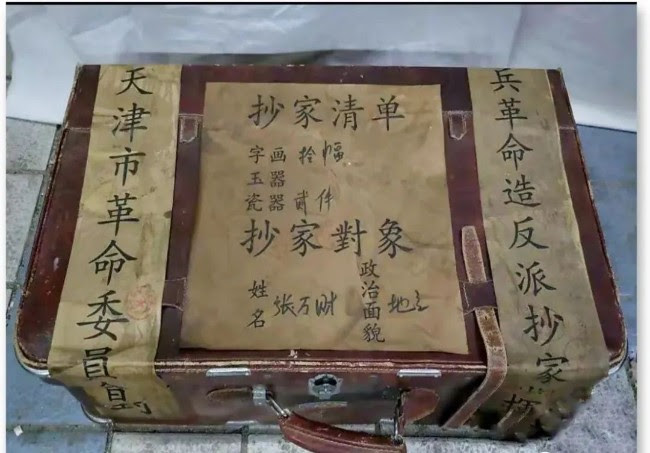 抄家清单
字画拾幅
玉器
瓷器贰件
抄家對象
姓名 张万财
政治面貌 地主
天津市革命委員會
兵革命造反派抄家